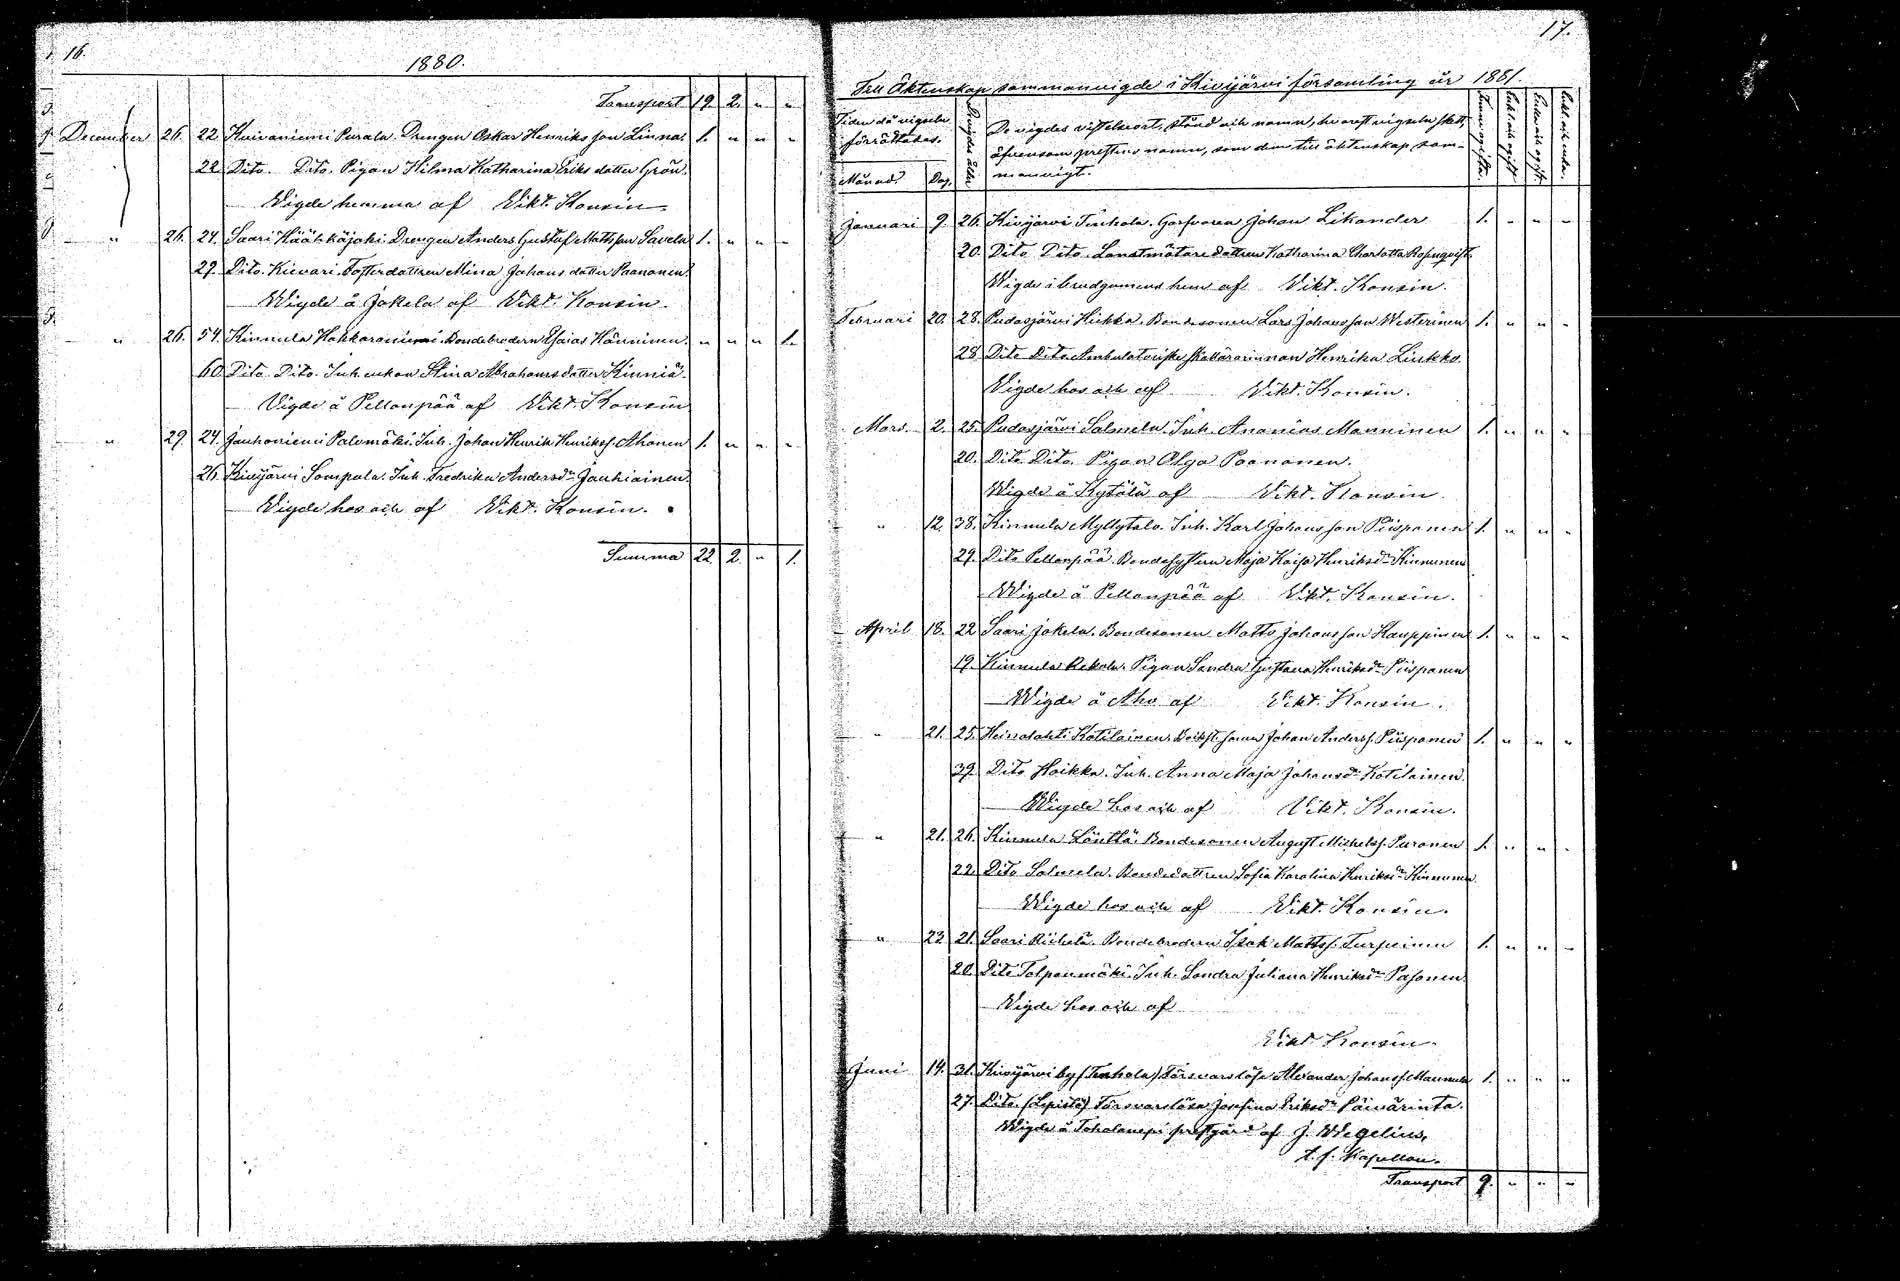 16.
1880.
Transport 19. 2. " "
December 26. 22. Kuivaniemi Perala. Drengen Oskar Henriksson Linna. 1. " " "
22. Dito. Dito. Pigan Hilma Katharina Eriksdotter Grön.
Wigde hemma af Vikt. Konsin.
" 26. 24. Saari Häähkäjoki Drengen Anders Gustaf Mattsson Savela 1. " " "
29. Dito. Kievari. Fosterdottren Mina Johansdotter Paananen.
Wigde å Jokela af Vikt. Konsin.
" 26. 54. Kinnula Hakkaraniemi Bondebrodern Esaias Hänninen. " " " 1.
60. Dito. Dito. Inh. enkan Stina Abrahamsdotter Kinniä.
Vigde å Pellonpää af Vikt. Konsin
" 29. 24. Jauhoniemi Palomäki. Inh. Johan Henrik Henrikss. Ahonen 1. " " "
26. Kivijärvi Sompala. Inh. Fredrika Andersdr Jauhiainen.
Vigde hos och af Vikt. Konsin.
Summa 22. 2. " 1.
17.
Till Äktenskap sammanvigde i Kivijärvi församling år 1881.
Tiden då vigseln förrättades.
Månad. Dag.
De vigdes ålder
De vigdes vistelseort, stånd och namn, hvarest vigseln skett,
äfvensom prestens namn, som dem till äktenskap sam-
manvigt.
Januari 9. 26. Kivijärvi Tinhola. Garfvaren Johan Likander 1. " " "
20. Dito Dito. Landtmätare dottren Katharina Charlotta Rosenqvist.
Wigde i brudgummens hem af Vikt. Konsin.
Februari 20. 28. Pudasjärvi Hiekka. Bondesonen Lars Johansson Westerinen 1. " " "
28. Dito Dito Ambulatoriska skollärarinnan Henrika Linkko.
Vigde hos och af Vikt. Konsin.
Mars 2. 25. Pudasjärvi Salmela. Inh. Ananias Manninen 1. " " "
20. Dito Dito. Pigan Olga Paananen.
Wigde å Kytölä af Vikt. Konsin
" 12. 38. Kinnula Myllytalo. Inh. Karl Johansson Piispanen 1. " " "
29. Dito Pellonpää. Bondesystern Maja Kaisa Henriksdr Kinnunen
Wigde å Pellonpää af Vikt. Konsin.
April 18. 22 Saari Jokela. Bondesonen Matts Johansson Kauppinen 1. " " "
19. Kinnula Rekola. Pigan Sandra Gustava Henriksdr Piispanen
Wigde å Aho af Vikt. Konsin.
" 21. 25. Heinolahti Kotilainen. Johan Anderss. Piispanen 1. " " "
39. Dito Hoikka. Inh. Anna Maja Johansdr Kotilainen.
Wigde hos och af Vikt. Konsin.
" 21. 26. Kinnula Länttä. Bondesonen August Michelss. Puranen 1. " " "
22. Dito Salmela. Bondedottren Sofia Karolina Henriksdr Kinnunen
Wigde hos och af Vikt. Konsin.
" 23. 21. Saari Riihelä. Bondebrodern Isak Mattss. Turpeinen 1. " " "
20. Dito Talpanmäki. Inh. Sandra Juliana Henriksdr Pasanen.
Vigde hos och af
Vikt. Konsin.
Juni 14. 31. Kivijärvi by (Tinhola) Försvarslöse Alexander Johanss. Mannula 1. " " "
27. Dito. (Lepistö) Försvarslösa Josefina Eriksdr Päivärinta.
Wigde å prestgård af J. Wegelius,
t. f. Kapellan.
Transport 9. " " "